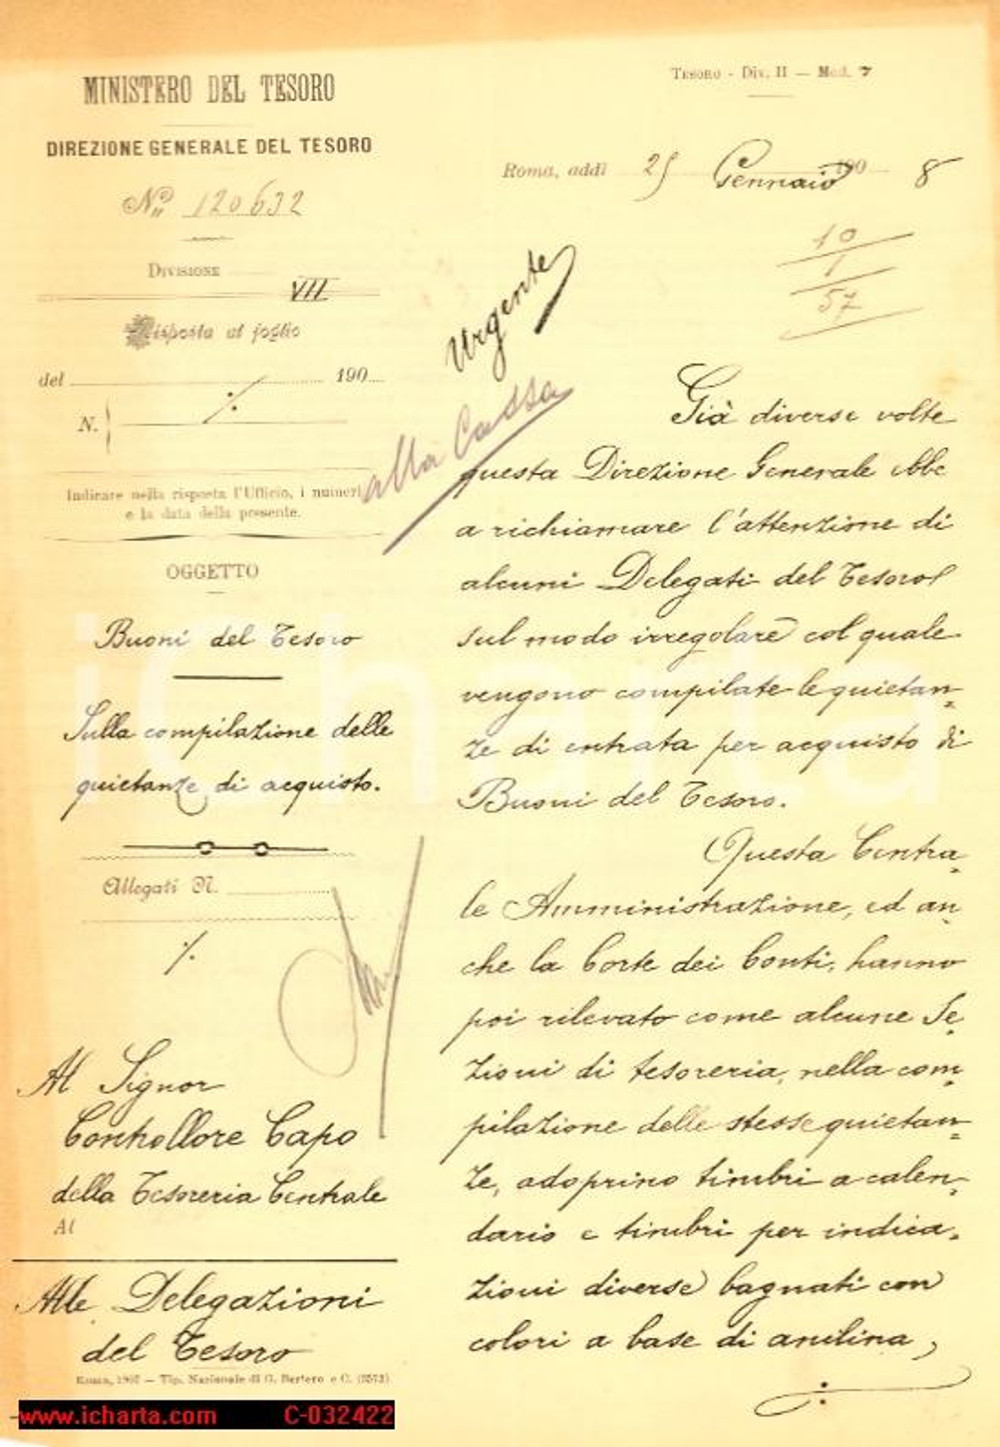 MINISTERO DEL TESORO
DIREZIONE GENERALE DEL TESORO
No 120632
DIVISIONE VII
Risposta al foglio
del 190
N.
Indicare nella risposta l'Ufficio, i numeri
e la data della presente.
OGGETTO
Buoni del Tesoro
Sulla compilazione delle
quietanze di acquisto.
Allegati N.
Al Signor
Controllore Capo
della Tesoreria Centrale
Al
Alle Delegazioni
del Tesoro
Roma, 1907 — Tip. Nazionale di G. Bertero e C. (5573)
TESORO - DIV. II — Mod. 7
Roma, addì 25 Gennaio 190 8
10
1
57
Urgente
alla Cassa
Già diverse volte
questa Direzione Generale ebbe
a richiamare l'attenzione di
alcuni Delegati del Tesoro
sul modo irregolare col quale
vengono compilate le quietan-
ze di entrata per acquisto di
Buoni del Tesoro.
Questa Centra-
le Amministrazione, ed an-
che la Corte dei Conti, hanno
poi rilevato come alcune Se-
zioni di tesoreria, nella com-
pilazione delle stesse quietan-
ze, adoprino timbri a calen-
dario e timbri per indica-
zioni diverse bagnati con
colori a base di anilina,
iCharta
www.icharta.com C-032422